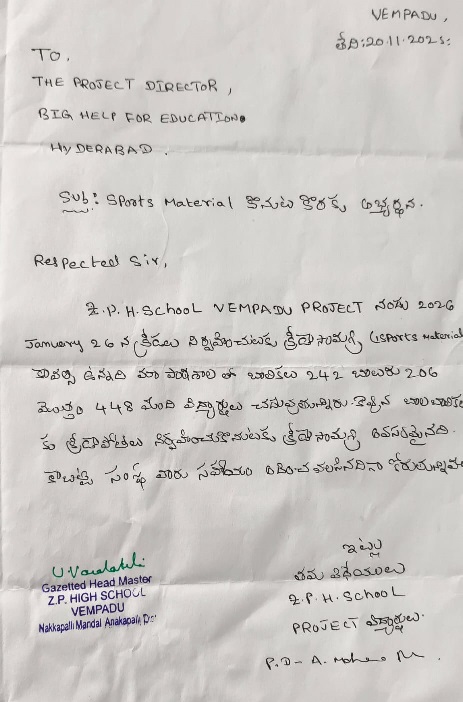 VEMPADU,
తేది:20.11.2025.
To.
THE PROJECT DIRECTOR,
BIG HELP FOR EDUCATION.
HYDERABAD.
Sub: Sports Material కొనుట కొరకు అభ్యర్థన.
Respected Sir,
Z.P.H.School VEMPADU PROJECT నందు 2026
January 26 న క్రీడలు నిర్వహించుటకు క్రీడా సామగ్రి (Sports Material
కావలసి ఉన్నది మా పాఠశాల లో బాలికలు 242 బాలురు 206
మొత్తం 448 మంది విద్యార్థులు చదువుతున్నారు. బాలబాలిక
కు క్రీడా పోటీలు నిర్వహించుకొనుటకు క్రీడా సామగ్రి అవసరమైనది.
కాబట్టి సంస్థ వారు సహాయం కోరుతున్నాం
ఇట్లు
తమ విధేయులు
Z.P.H.School
PROJECT విద్యార్థులు.
P.D - A.
Gazetted Head Master
Z.P. HIGH SCHOOL
VEMPADU
Nakkapalli Mandal Anakapalli Dist